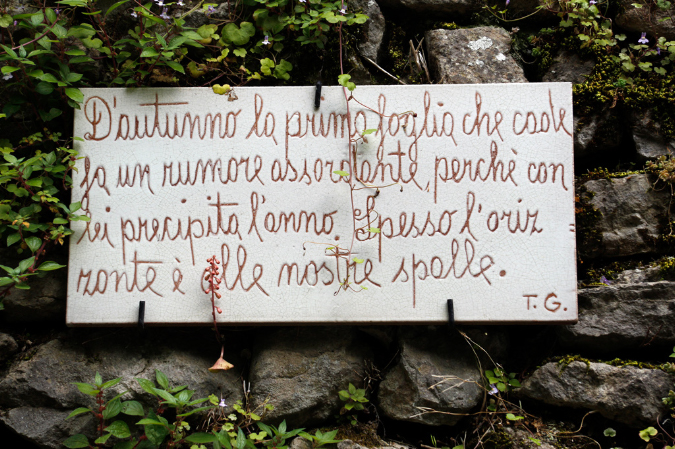 D'autunno la prima foglia che cade
fa un rumore assordante perchè con
lei precipita l'anno. Spesso l'oriz=
zonte è alle nostre spalle.
T.G.